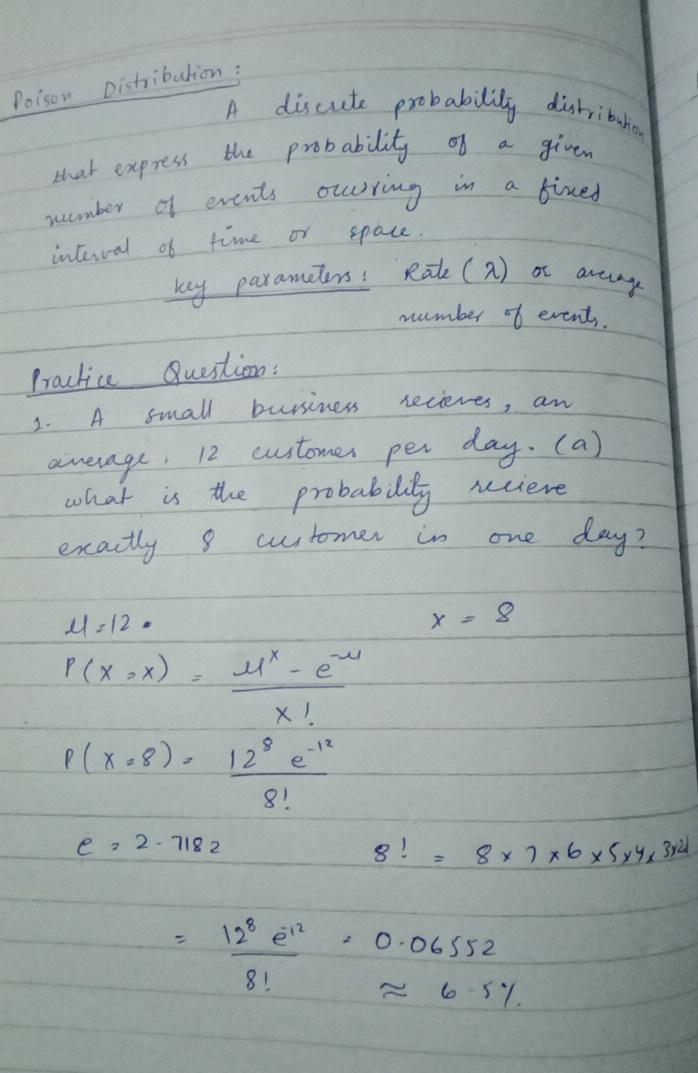 Poison Distribution:
A discrete probability distribution
that express the probability of a given
number of events occuring in a fixed
interval of time or space.
key parameters: Rate (λ) or average
number of events.
Practice Question:
1. A small bussiness recieves, an
average, 12 customer per day. (a)
what is the probability recieve
exactly 8 customer in one day?
μ=12. x = 8
P(X=x) = μˣ - e⁻ᵘ
x!
P(X=8) = 12⁸ e⁻¹²
8!
e = 2.7182 8! = 8×7×6×5×4×3×2×1
= 12⁸ e⁻¹² = 0.06552
8! ≈ 6.5%